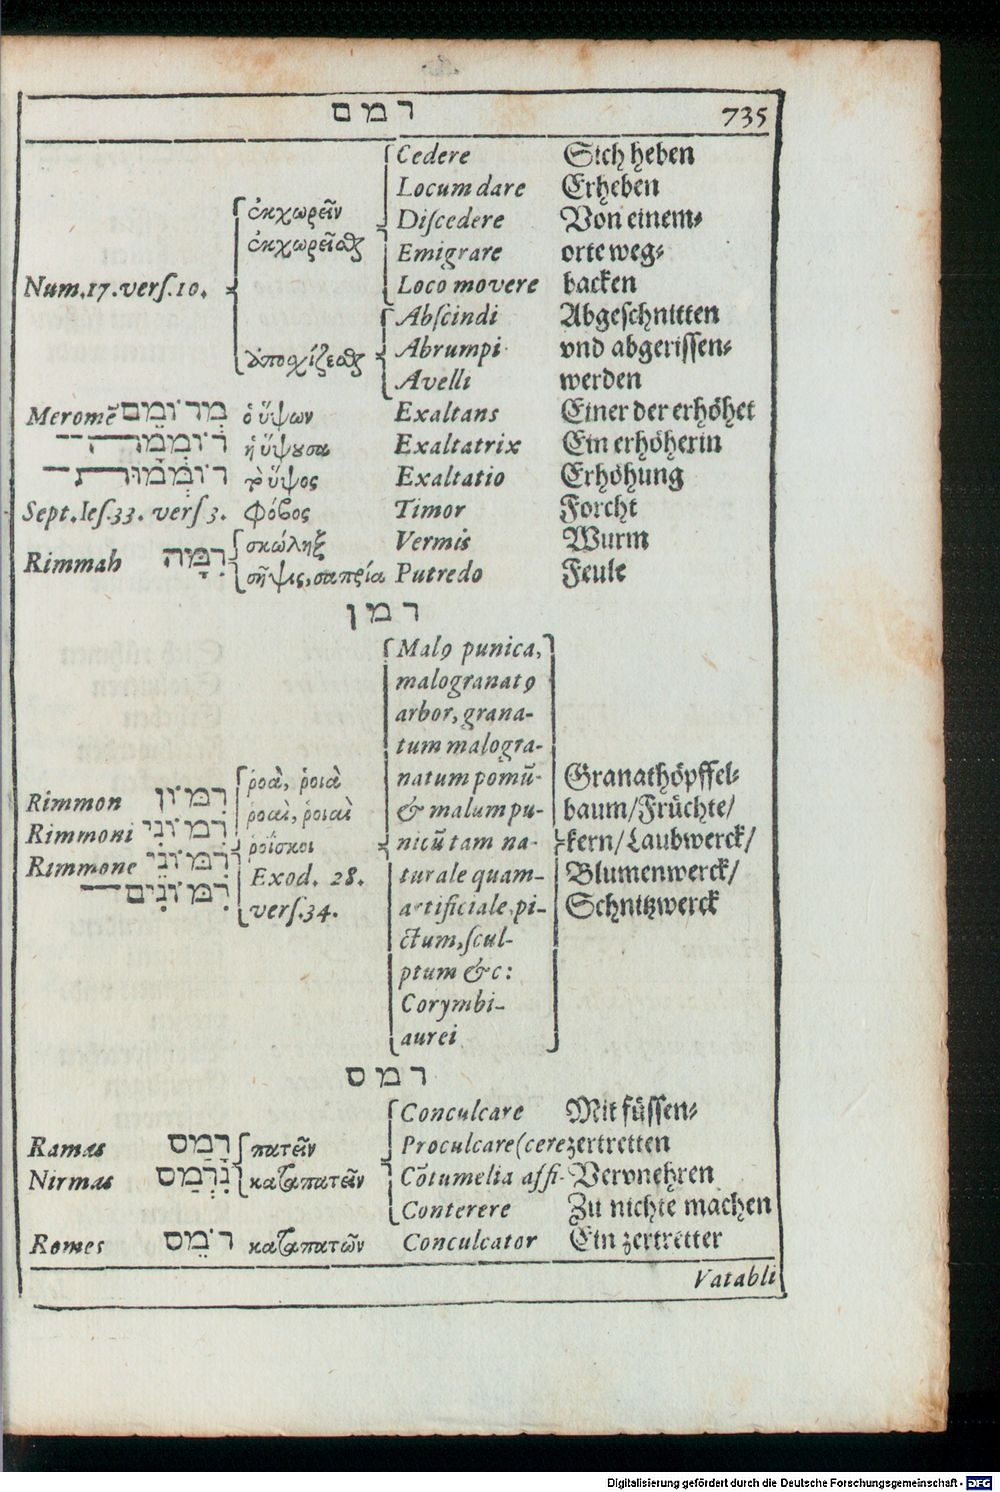 רמם 735
Cedere Sich heben
Locum dare Erheben
ἐκχωρεῖν Discedere Von einem⸗
ἐκχωρεῖσθαι Emigrare orte weg⸗
Num.17.vers.10. Loco movere backen
Abscindi Abgeschnitten
ἀποσχίζεσθαι Abrumpi vnd abgerissen⸗
Avelli werden
Meromē מְרוֹמֵם ὁ ὑψῶν Exaltans Einer der erhöhet
רוֹמֵמָה-- ἡ ὑψοῦσα Exaltatrix Ein erhöherin
רוֹמְמוּת- τὸ ὕψος Exaltatio Erhöhung
Sept. Ies.33. vers 3. φόβος Timor Forcht
σκώληξ Vermis Wurm
Rimmah רִמָּה σῆψις, σαπρία Putredo Feule
רמן
Malꝰ punica,
malogranatꝰ
arbor, grana-
tum malogra-
ῥοὰ, ῥοιὰ natum pomū- Granathöpffel⸗
Rimmon רִמּוֹן ῥοαὶ, ῥοιαὶ & malum pu- baum/Früchte/
Rimmoni רִמּוֹנִי ῥοΐσκοι nicū tam na- kern/Laubwerck/
Rimmone רִמּוֹנֵי Exod. 28. turale quam- Blumenwerck/
רִמּוֹנִים-- vers.34. artificiale, pi- Schnitzwerck
ctum, scul-
ptum &c:
Corymbi-
aurei
רמס
Conculcare Mit füssen⸗
Ramas רָמַס πατεῖν Proculcare (cere zertretten
Nirmas נִרְמַס καταπατεῖν Cōtumelia affi- Vervnehren
Conterere Zu nichte machen
Romes רֹמֵס καταπατῶν Conculcator Ein zertretter
Vatabli
Digitalisierung gefördert durch die Deutsche Forschungsgemeinschaft - DFG